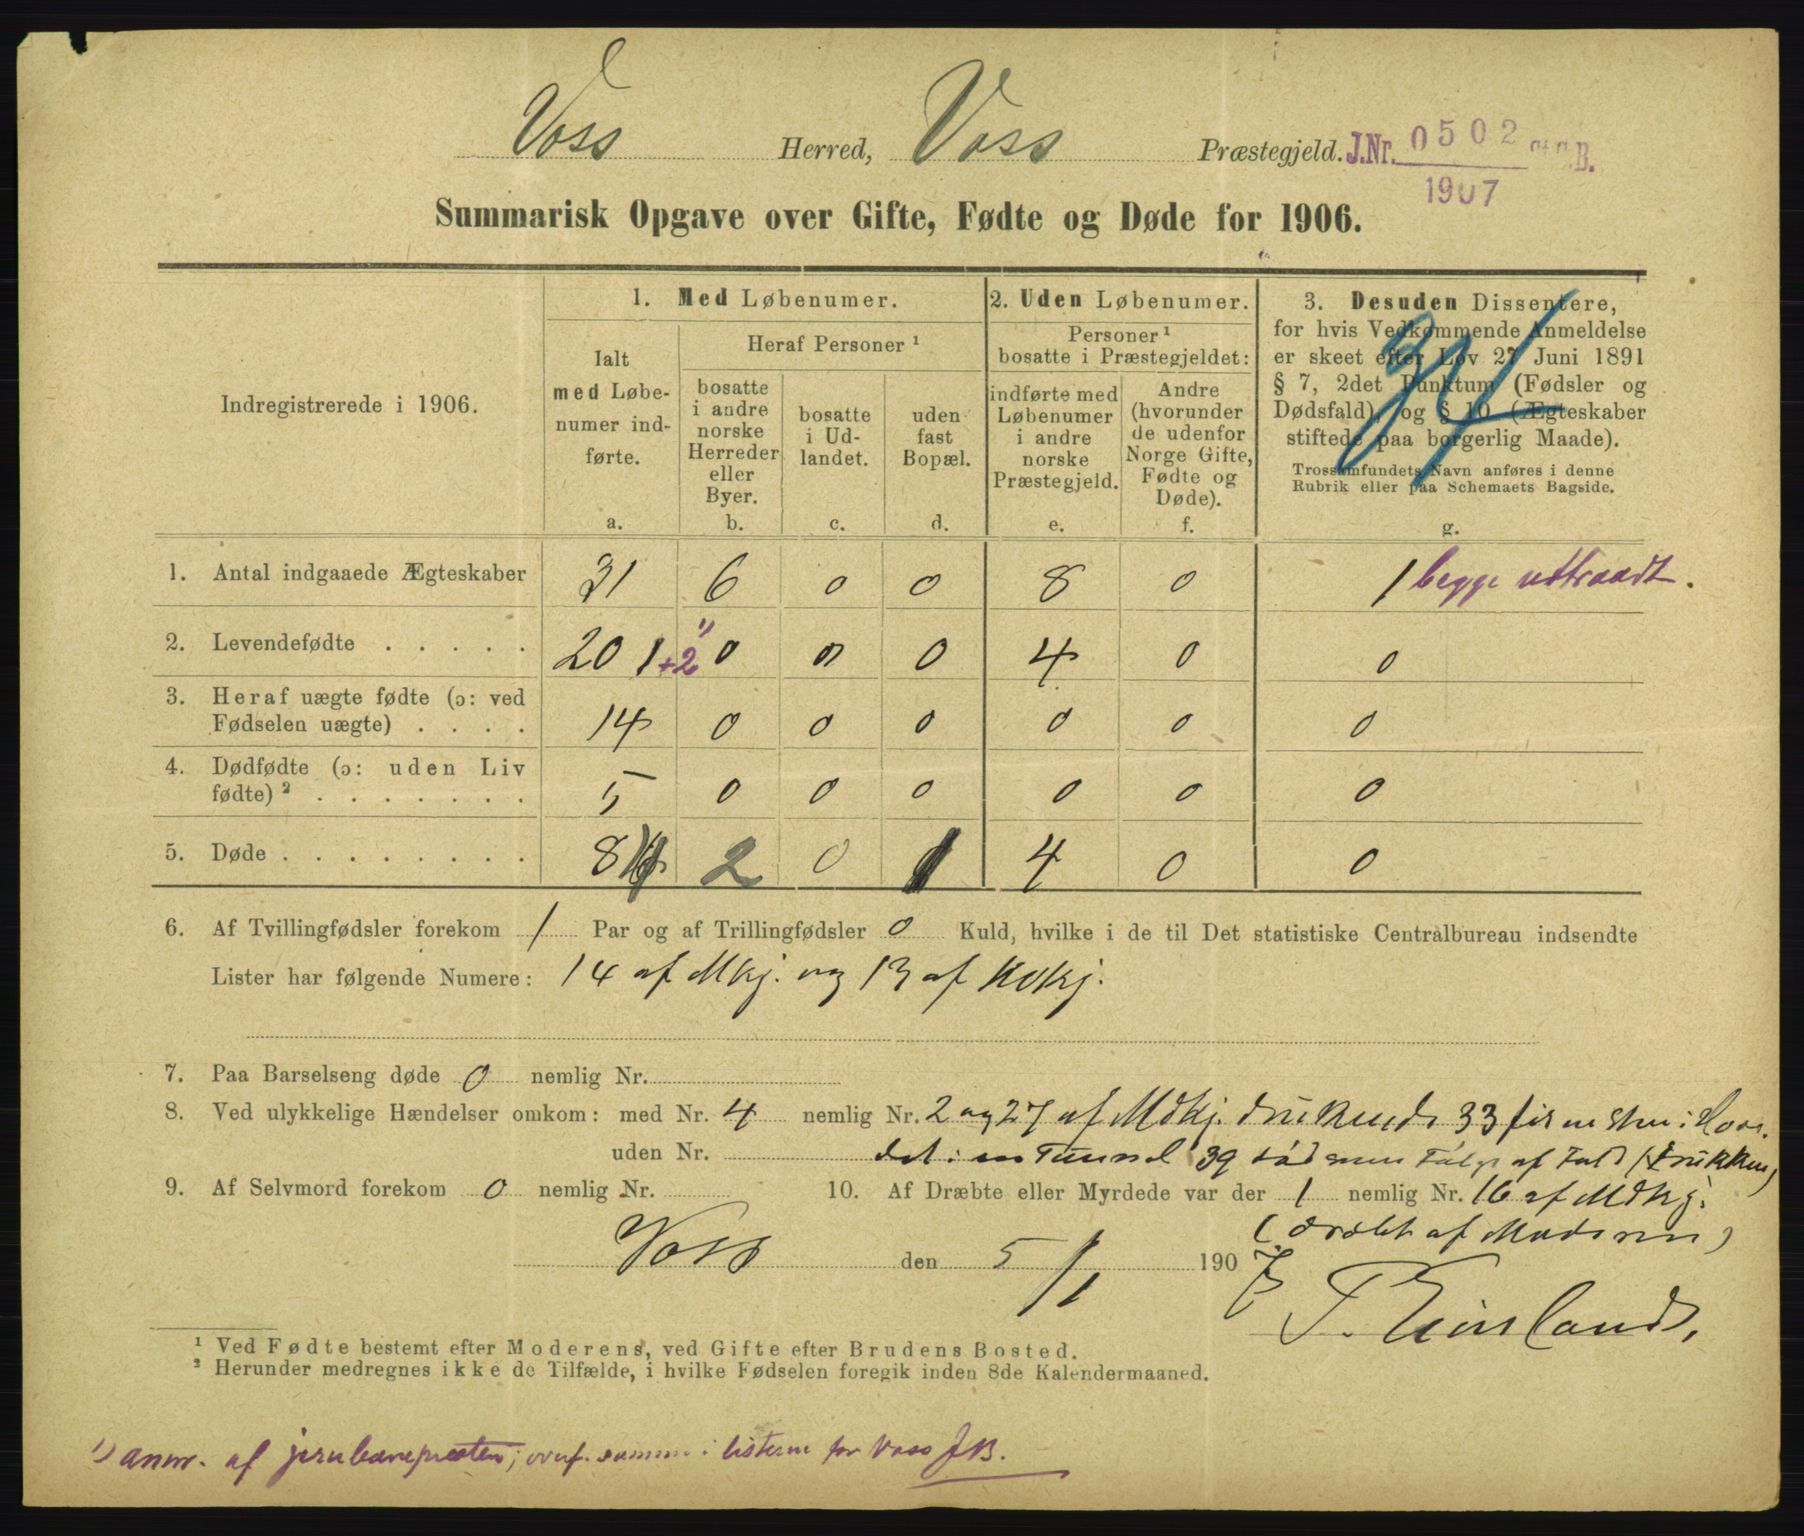 Voss Herred, Voss Præstegjeld. J.Nr. 0502 St.C.B.
1907
Summarisk Opgave over Gifte, Fødte og Døde for 1906.
Indregistrerede i 1906.
1. Med Løbenumer.
Ialt
med Løbe-
numer ind-
førte.
a.
Heraf Personer ¹
bosatte
i andre
norske
Herreder
eller
Byer.
b.
bosatte
i Ud-
landet.
c.
uden
fast
Bopæl.
d.
2. Uden Løbenumer.
Personer ¹
bosatte i Præstegjeldet:
indførte med
Løbenumer
i andre
norske
Præstegjeld.
e.
Andre
(hvorunder
de udenfor
Norge Gifte,
Fødte og
Døde).
f.
3. Desuden Dissentere,
for hvis Vedkommende Anmeldelse
er skeet efter Lov 27 Juni 1891
§ 7, 2det Punktum (Fødsler og
Dødsfald) og § 10 (Ægteskaber
stiftede paa borgerlig Maade).
Trossamfundets Navn anføres i denne
Rubrik eller paa Schemaets Bagside.
g.
1. Antal indgaaede Ægteskaber 31 6 0 0 8 0 1 begge udtraadt.
2. Levendefødte . . . . . 201 +2 ¹) 0 0 0 4 0 0
3. Heraf uægte fødte (ɔ: ved
Fødselen uægte) . . . . 14 0 0 0 0 0 0
4. Dødfødte (ɔ: uden Liv
fødte) ² . . . . . . . 5 0 0 0 0 0 0
5. Døde . . . . . . . . 2 0 1 4 0 0
6. Af Tvillingfødsler forekom 1 Par og af Trillingfødsler 0 Kuld, hvilke i de til Det statistiske Centralbureau indsendte
Lister har følgende Numere: 14 af Mkj. og 13 af Kvkj.
7. Paa Barselseng døde 0 nemlig Nr.
8. Ved ulykkelige Hændelser omkom: med Nr. 4 nemlig Nr. 2 og 27 af Mdkj. 33
uden Nr. i en Tunnel 39 død som Følge af Fald
9. Af Selvmord forekom 0 nemlig Nr.
10. Af Dræbte eller Myrdede var der 1 nemlig Nr. 16 af Mdkj.
(dræbt af Moderen)
Voss den 5/1 1907
¹ Ved Fødte bestemt efter Moderens, ved Gifte efter Brudens Bosted.
² Herunder medregnes ikke de Tilfælde, i hvilke Fødselen foregik inden 8de Kalendermaaned.
¹) anm. af jernbanepræsten; i listerne for Voss JB.